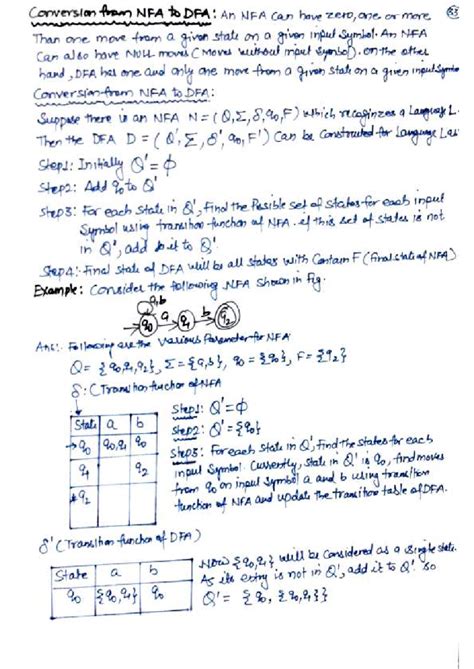 Conversion from NFA to DFA: An NFA can have zero, one or more
Than one move from a given state on a given input symbol. An NFA
Can also have NULL moves (Moves without input symbol). on the other
hand, DFA has one and only one move from a given state on a given input symbol
Conversion from NFA to DFA:
Suppose there is an NFA N = (Q, Σ, δ, q0, F) which recoginzes a Language L.
Then the DFA D = (Q', Σ, δ', q0, F') can be constructed for Language L as:
Step1: Initially Q' = ϕ
Step2: Add q0 to Q'
Step3: For each state in Q', find the Possible set of states for each input
Symbol using transition function of NFA. if this set of states is not
in Q', add it to Q'.
Step4: Final state of DFA will be all states with Contain F (final state of NFA)
Example: Consider the following NFA shown in Fig.
a,b
q0 a q1 b q2
Ans: Following are the various Parameter for NFA.
Q = {q0, q1, q2}, Σ = {a, b}, q0 = {q0}, F = {q2}
δ: (Transition function of NFA
State a b
→q0 q0,q1 q0
q1 q2
*q2
Step1: Q' = ϕ
Step2: Q' = {q0}
Step3: For each state in Q', find the states for each
input symbol. Currently, state in Q' is q0, find moves
from q0 on input symbol a and b using transition
function of NFA and update the transition table of DFA.
δ' (Transition function of DFA)
State a b
q0 {q0,q1} q0
Now {q0,q1} will be considered as a single state.
As its entry is not in Q', add it to Q'. So
Q' = {q0, {q0,q1}}